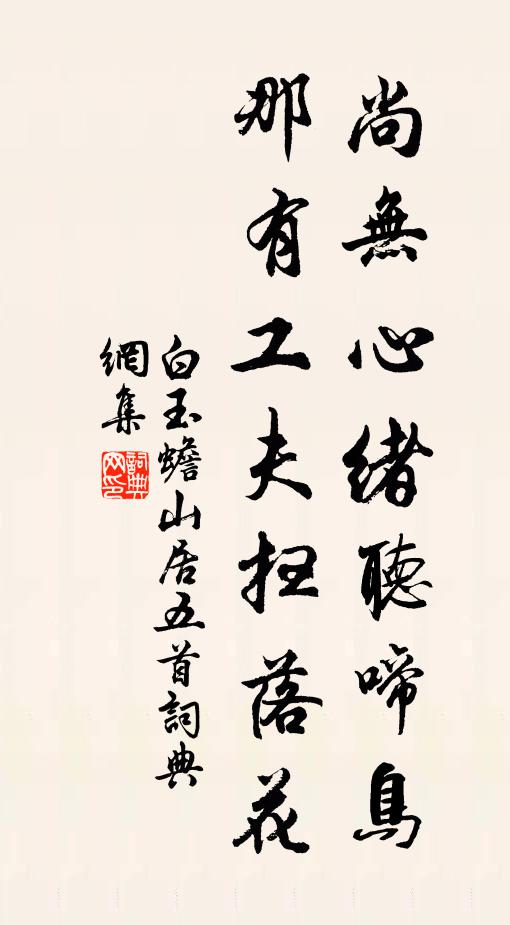 尚無心緒聽啼鳥
那有工夫扫落花
白玉蟾山居五首詞典
網集
詞典
网印